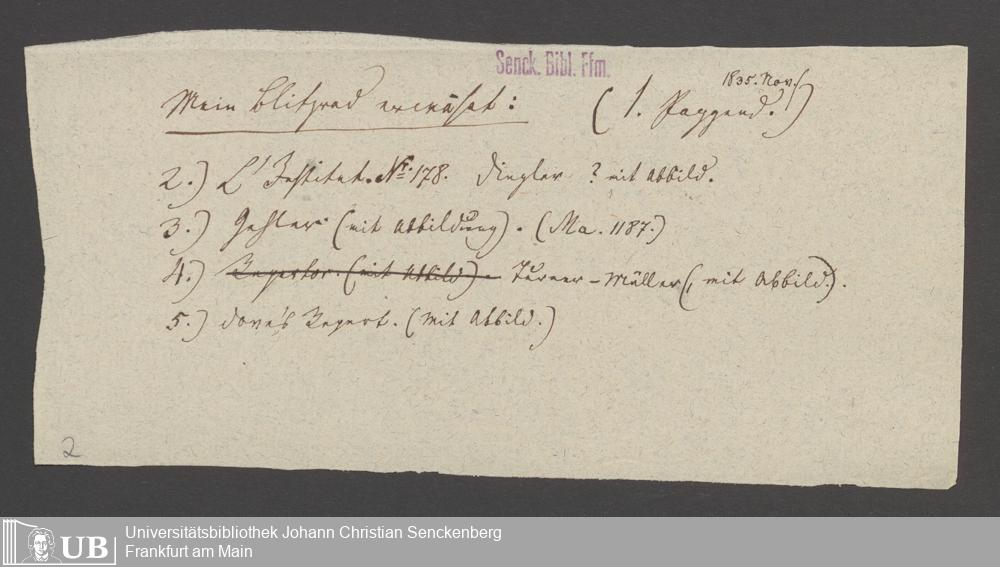 Senck. Bibl. Ffm.
1835. Nov.
Mein Blitzrad erwähnt: (1. Poggend.)
2.) L'Institut. No. 178. Dingler ? mit Abbild.
3.) Gehler (mit Abbildung). (Ma. 1187.)
4.) Repertor. (mit Abbild) Turner-Müller (, mit Abbild.).
5.) Dove's Repert. (mit Abbild.)
2
UB
Universitätsbibliothek Johann Christian Senckenberg
Frankfurt am Main